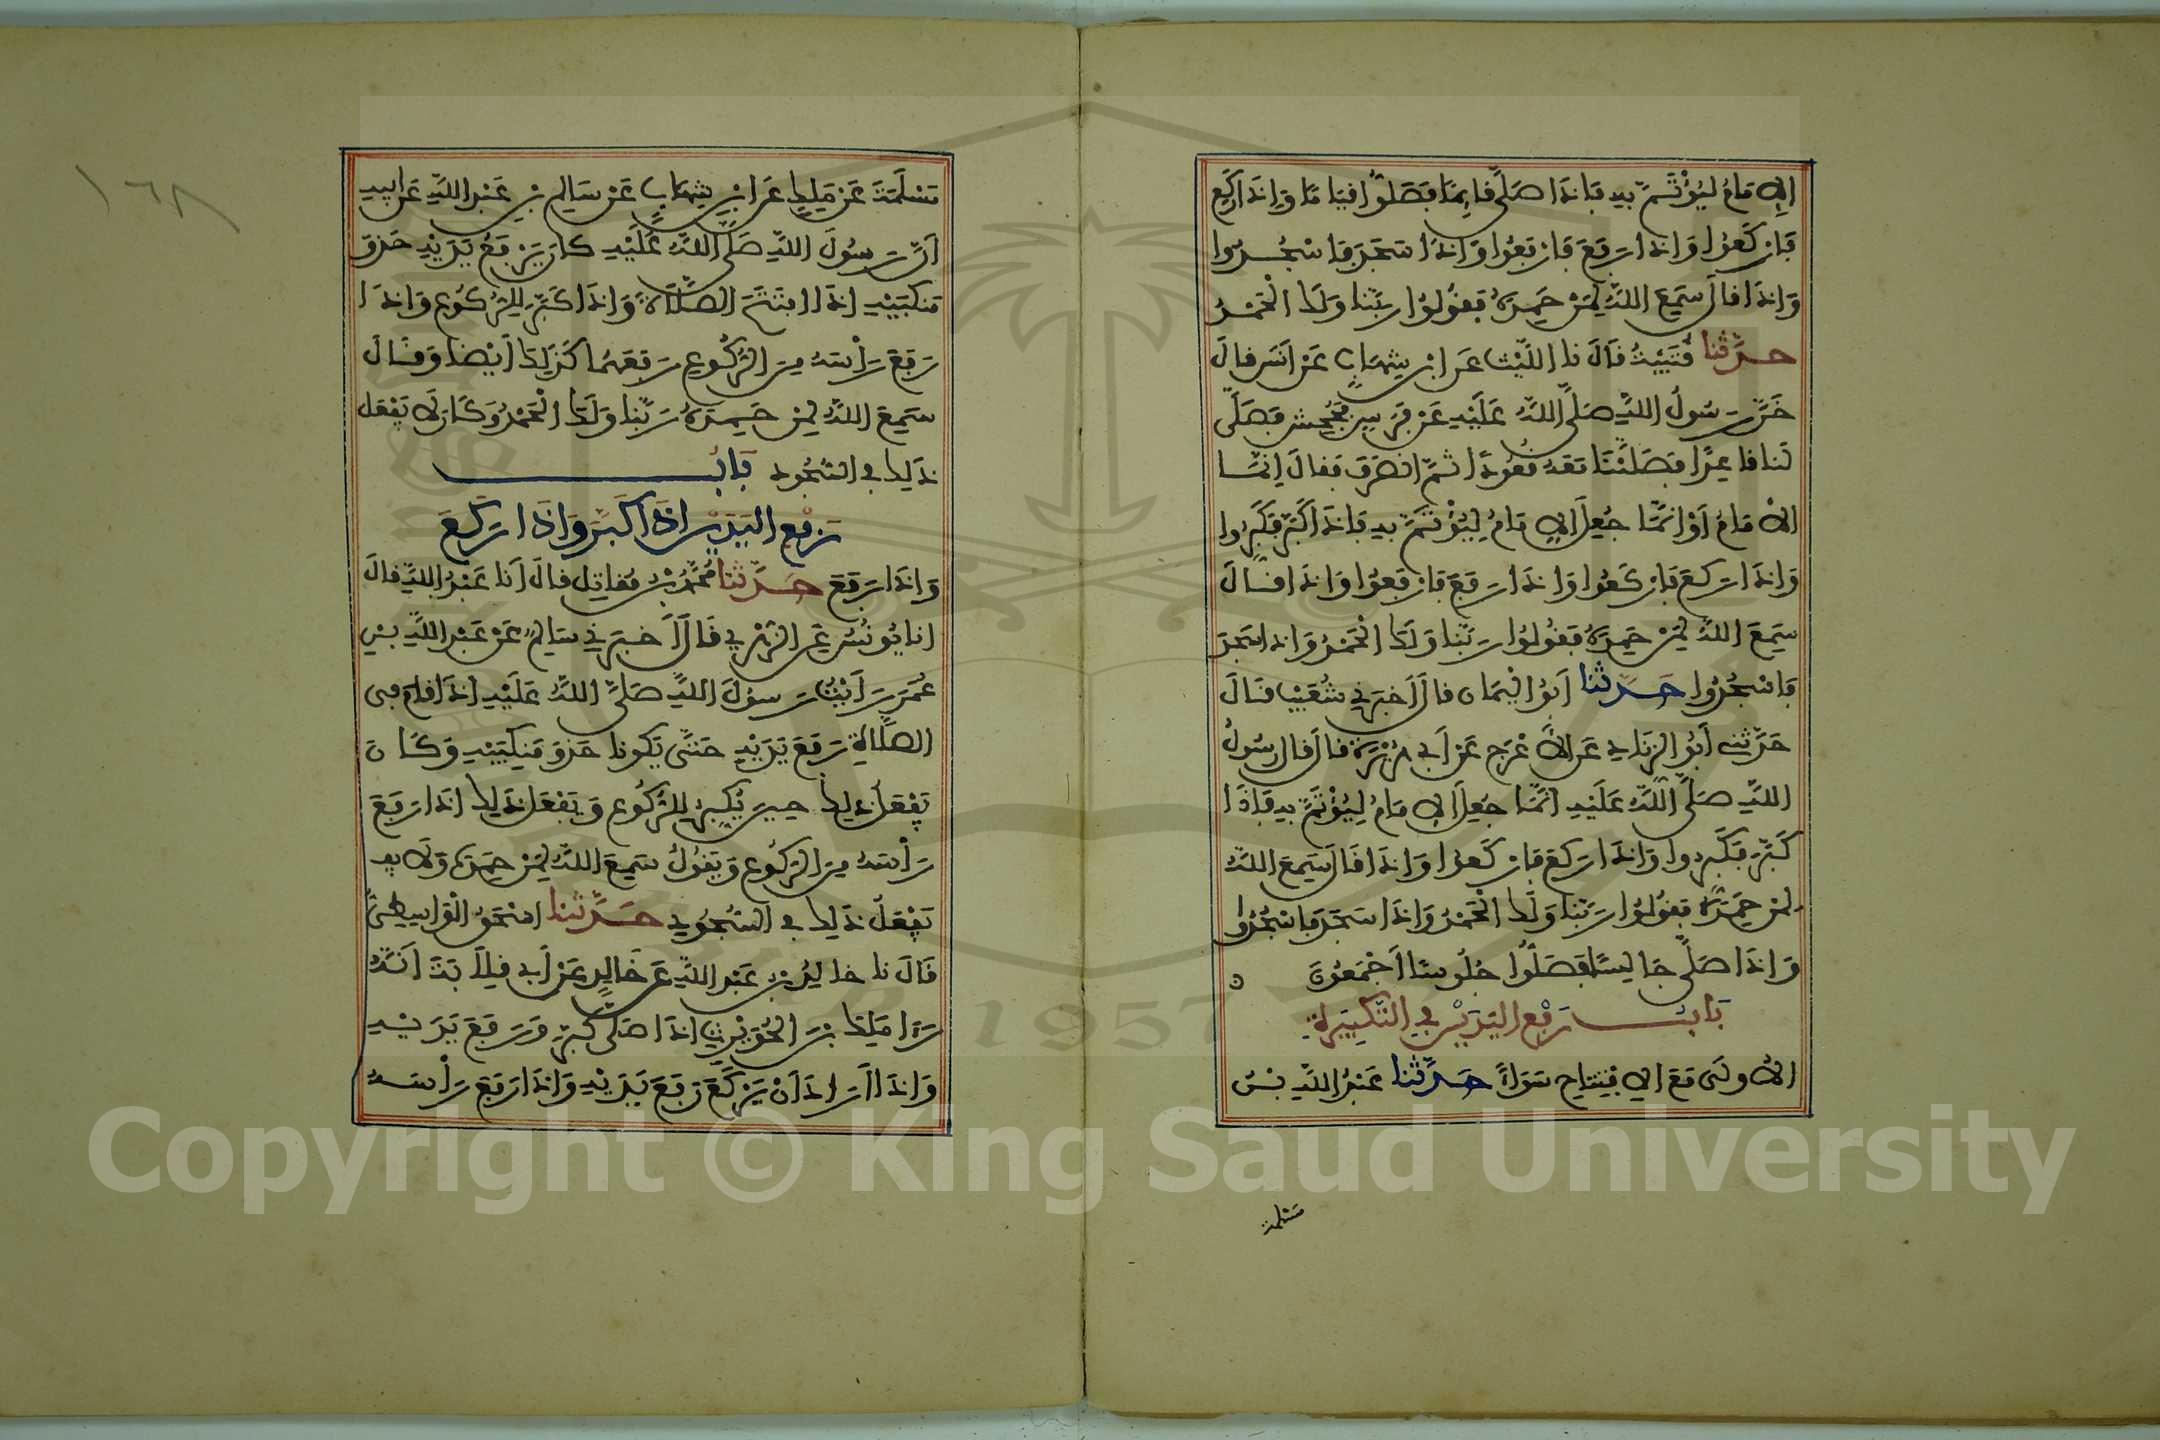 الإمام ليؤتم به فإذا صلى قائما فصلوا قياما وإذا ركع
فاركعوا وإذا رفع فارفعوا وإذا سجد فاسجدوا
وإذا قال سمع الله لمن حمده فقولوا ربنا ولك الحمد
حدثنا قتيبة قال نا الليث عن ابن شهاب عن أنس قال
خر رسول الله صلى الله عليه عن فرس فجحش فصلى
لنا قاعدا فصلينا معه قعودا ثم انصرف فقال إنما
الإمام أو إنما جعل الإمام ليؤتم به فإذا كبر فكبروا
وإذا ركع فاركعوا وإذا رفع فارفعوا وإذا قال
سمع الله لمن حمده فقولوا ربنا ولك الحمد وإذا سجد
فاسجدوا حدثنا أبو اليمان قال أخبرني شعيب قال
حدثني أبو الزناد عن الأعرج عن أبي هريرة قال قال رسول
الله صلى الله عليه إنما جعل الإمام ليؤتم به فإذا
كبر فكبروا وإذا ركع فاركعوا وإذا قال سمع الله
لمن حمده فقولوا ربنا ولك الحمد وإذا سجد فاسجدوا
وإذا صلى جالسا فصلوا جلوسا أجمعون
باب رفع اليدين في التكبيرة
الأولى مع الإفتتاح سواء حدثنا عبد الله بن
مسلمة
١٦٨
مسلمة عن ملك عن ابن شهاب عن سالم بن عبد الله عن أبيه
أن رسول الله صلى الله عليه كان يرفع يديه حذو
منكبيه إذا افتتح الصلاة وإذا كبر للركوع وإذا
رفع رأسه من الركوع رفعهما كذلك أيضا وقال
سمع الله لمن حمده ربنا ولك الحمد وكان لا يفعل
ذلك في السجود باب
رفع اليدين إذا كبر وإذا ركع
وإذا رفع حدثنا محمد بن مقاتل قال أنا عبد الله قال
انا يونس عن الزهري قال أخبرني سالم عن عبد الله بن
عمر رأيت رسول الله صلى الله عليه إذا قام في
الصلاة رفع يديه حتى يكونا حذو منكبيه وكان
يفعل ذلك حين يكبر للركوع ويفعل ذلك إذا رفع
رأسه من الركوع ويقول سمع الله لمن حمده ولا
يفعل ذلك في السجود حدثنا اسحق الواسطي
قال نا خالد بن عبد الله عن خالد عن أبي قلابة أنه
رءا ملك بن الحويرث إذا صلى كبر ورفع يديه
وإذا أراد أن يركع رفع يديه وإذا رفع رأسه
Copyright © King Saud University
1957